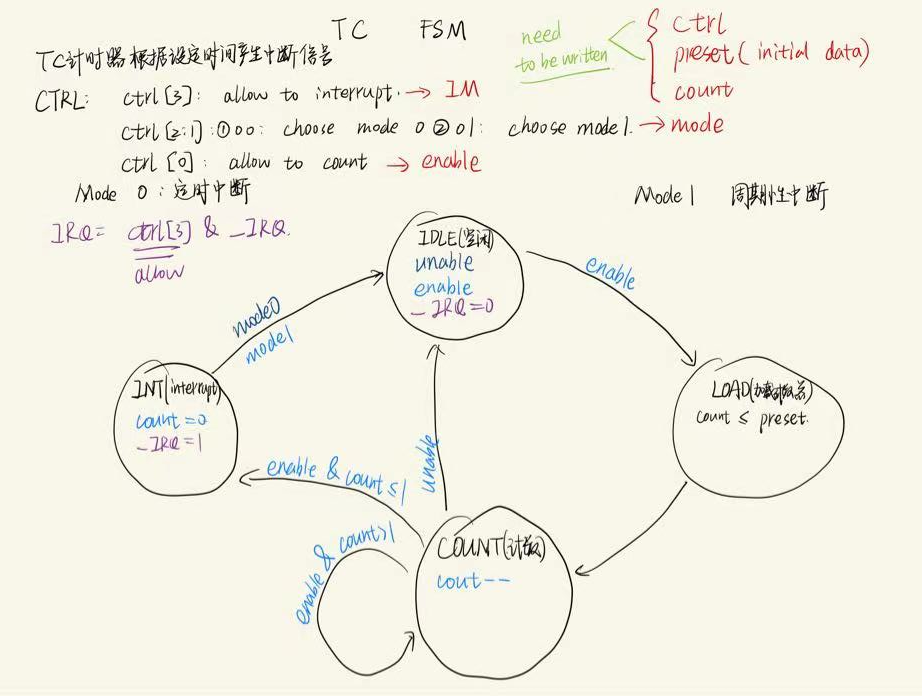 TC FSM
need
to be written
ctrl
preset( initial data)
count
TC计时器 根据设定时间产生中断信号
CTRL: ctrl[3]: allow to interrupt. → IM
ctrl[2:1]: ①00: choose mode 0 ②01: choose mode1. → mode
ctrl [0]: allow to count → enable
Mode 0 : 定时中断
Mode1 周期性中断
IRQ= ctrl[3] & _IRQ.
allow
IDLE(空闲)
unable
enable
_IRQ=0
enable
mode0
mode1
INT(interrupt)
count=0
_IRQ=1
LOAD(加载
count ≤ preset.
enable & count≤1
unable
enable & count>1
COUNT(计数)
cout--